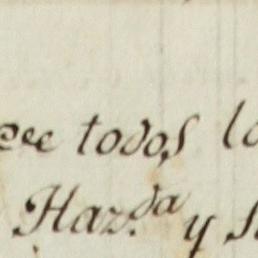 todos lo
Haz.da y